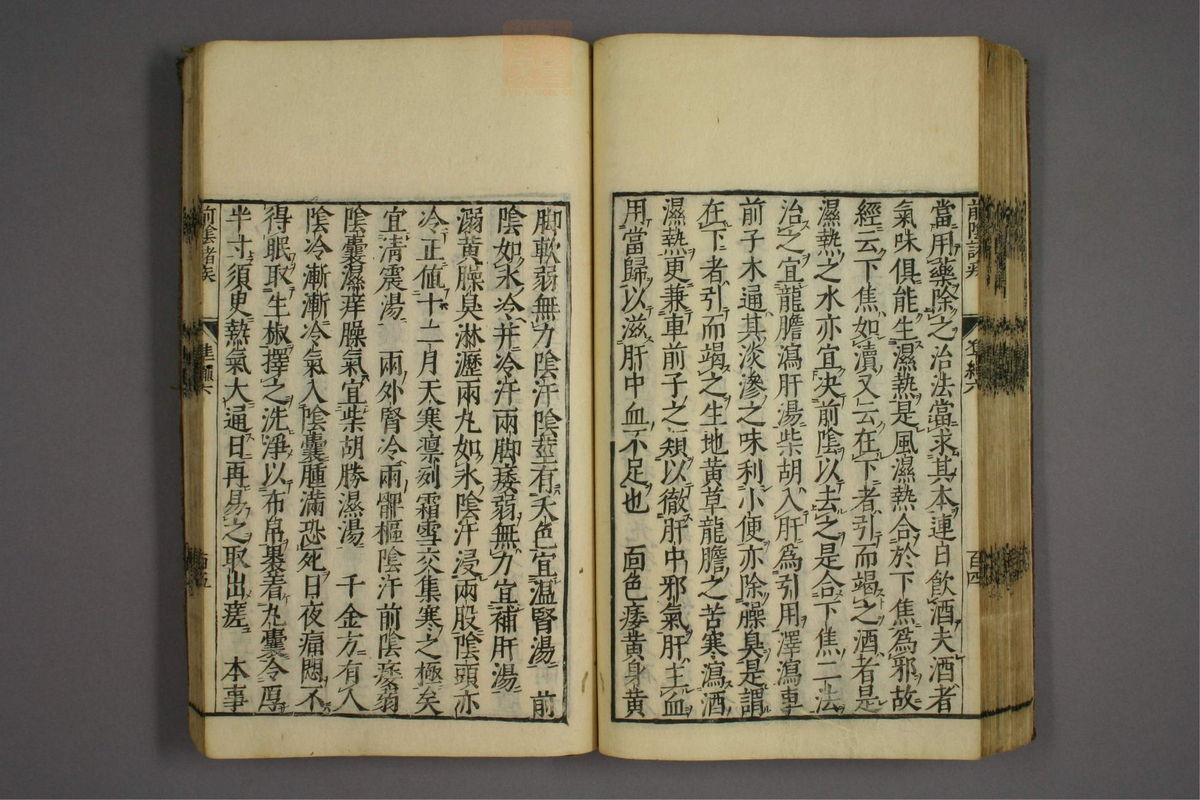 當用藥除之治法當求其本連日飲酒夫酒者
氣味俱能生濕熱是風濕熱合於下焦為邪故
經云下焦如瀆又云在下者引而竭之酒者是
濕熱之水亦宜決前陰以去之是合下焦二法
治之宜龍膽瀉肝湯柴胡入肝為引用澤瀉車
前子木通其淡滲之味利小便亦除臊臭是謂
在下者引而竭之生地黄草龍膽之苦寒瀉酒
濕熱更兼車前子之類以徹肝中邪氣肝主血
用當歸以滋肝中血不足也 面色痿黄身黄
脚軟弱無力陰汗陰莖有夭色宜溫腎湯 前
陰如氷冷并冷汗兩脚痿弱無力宜補肝湯
溺黄臊臭淋瀝兩丸如氷陰汗浸兩股陰頭亦
冷正值十二月天寒凛冽霜雪交集寒之極矣
宜清震湯 兩外腎冷兩髀樞陰汗前陰痿弱
陰囊濕痒臊氣宜柴胡勝濕湯 千金方有人
陰冷漸漸冷氣入陰囊腫滿恐死日夜痛悶不
得眠取生椒擇之洗淨以布帛裹着丸囊令厚
半寸須臾熱氣大通日再易之取出瘥 本事
前陰諸疾 百五